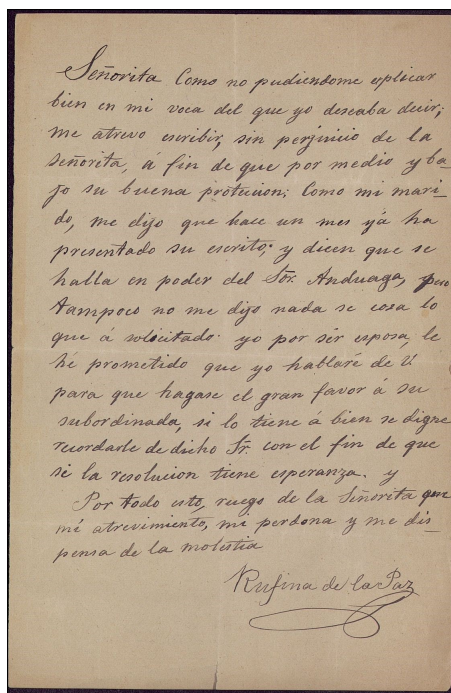 Señorita Como no pudiendome esplicar
bien en mi voca del que yo deseaba decir;
me atrevo escribir, sin perjuicio de la
Señorita, á fin de que por medio y ba-
jo su buena protucion; Como mi mari-
do, me dijo que hace un mes yá ha
presentado su escrito; y dicen que se
halla en poder del Sor. Anduaga, pero
tampoco no me dijo nada se cosa lo
que á solicitado. yo por sér esposa, le
hé prometido que yo hablaré de V.
para que hagase el gran favor á su
subordinada, si lo tiene á bien se digne
recordarle de dicho Sr. con el fin de que
si la resolucion tiene esperanza. y
Por todo esto, ruego de la Señorita que
mi atrevimiento, mi perdona y me dis-
pensa de la molestia
Rufina de la Paz